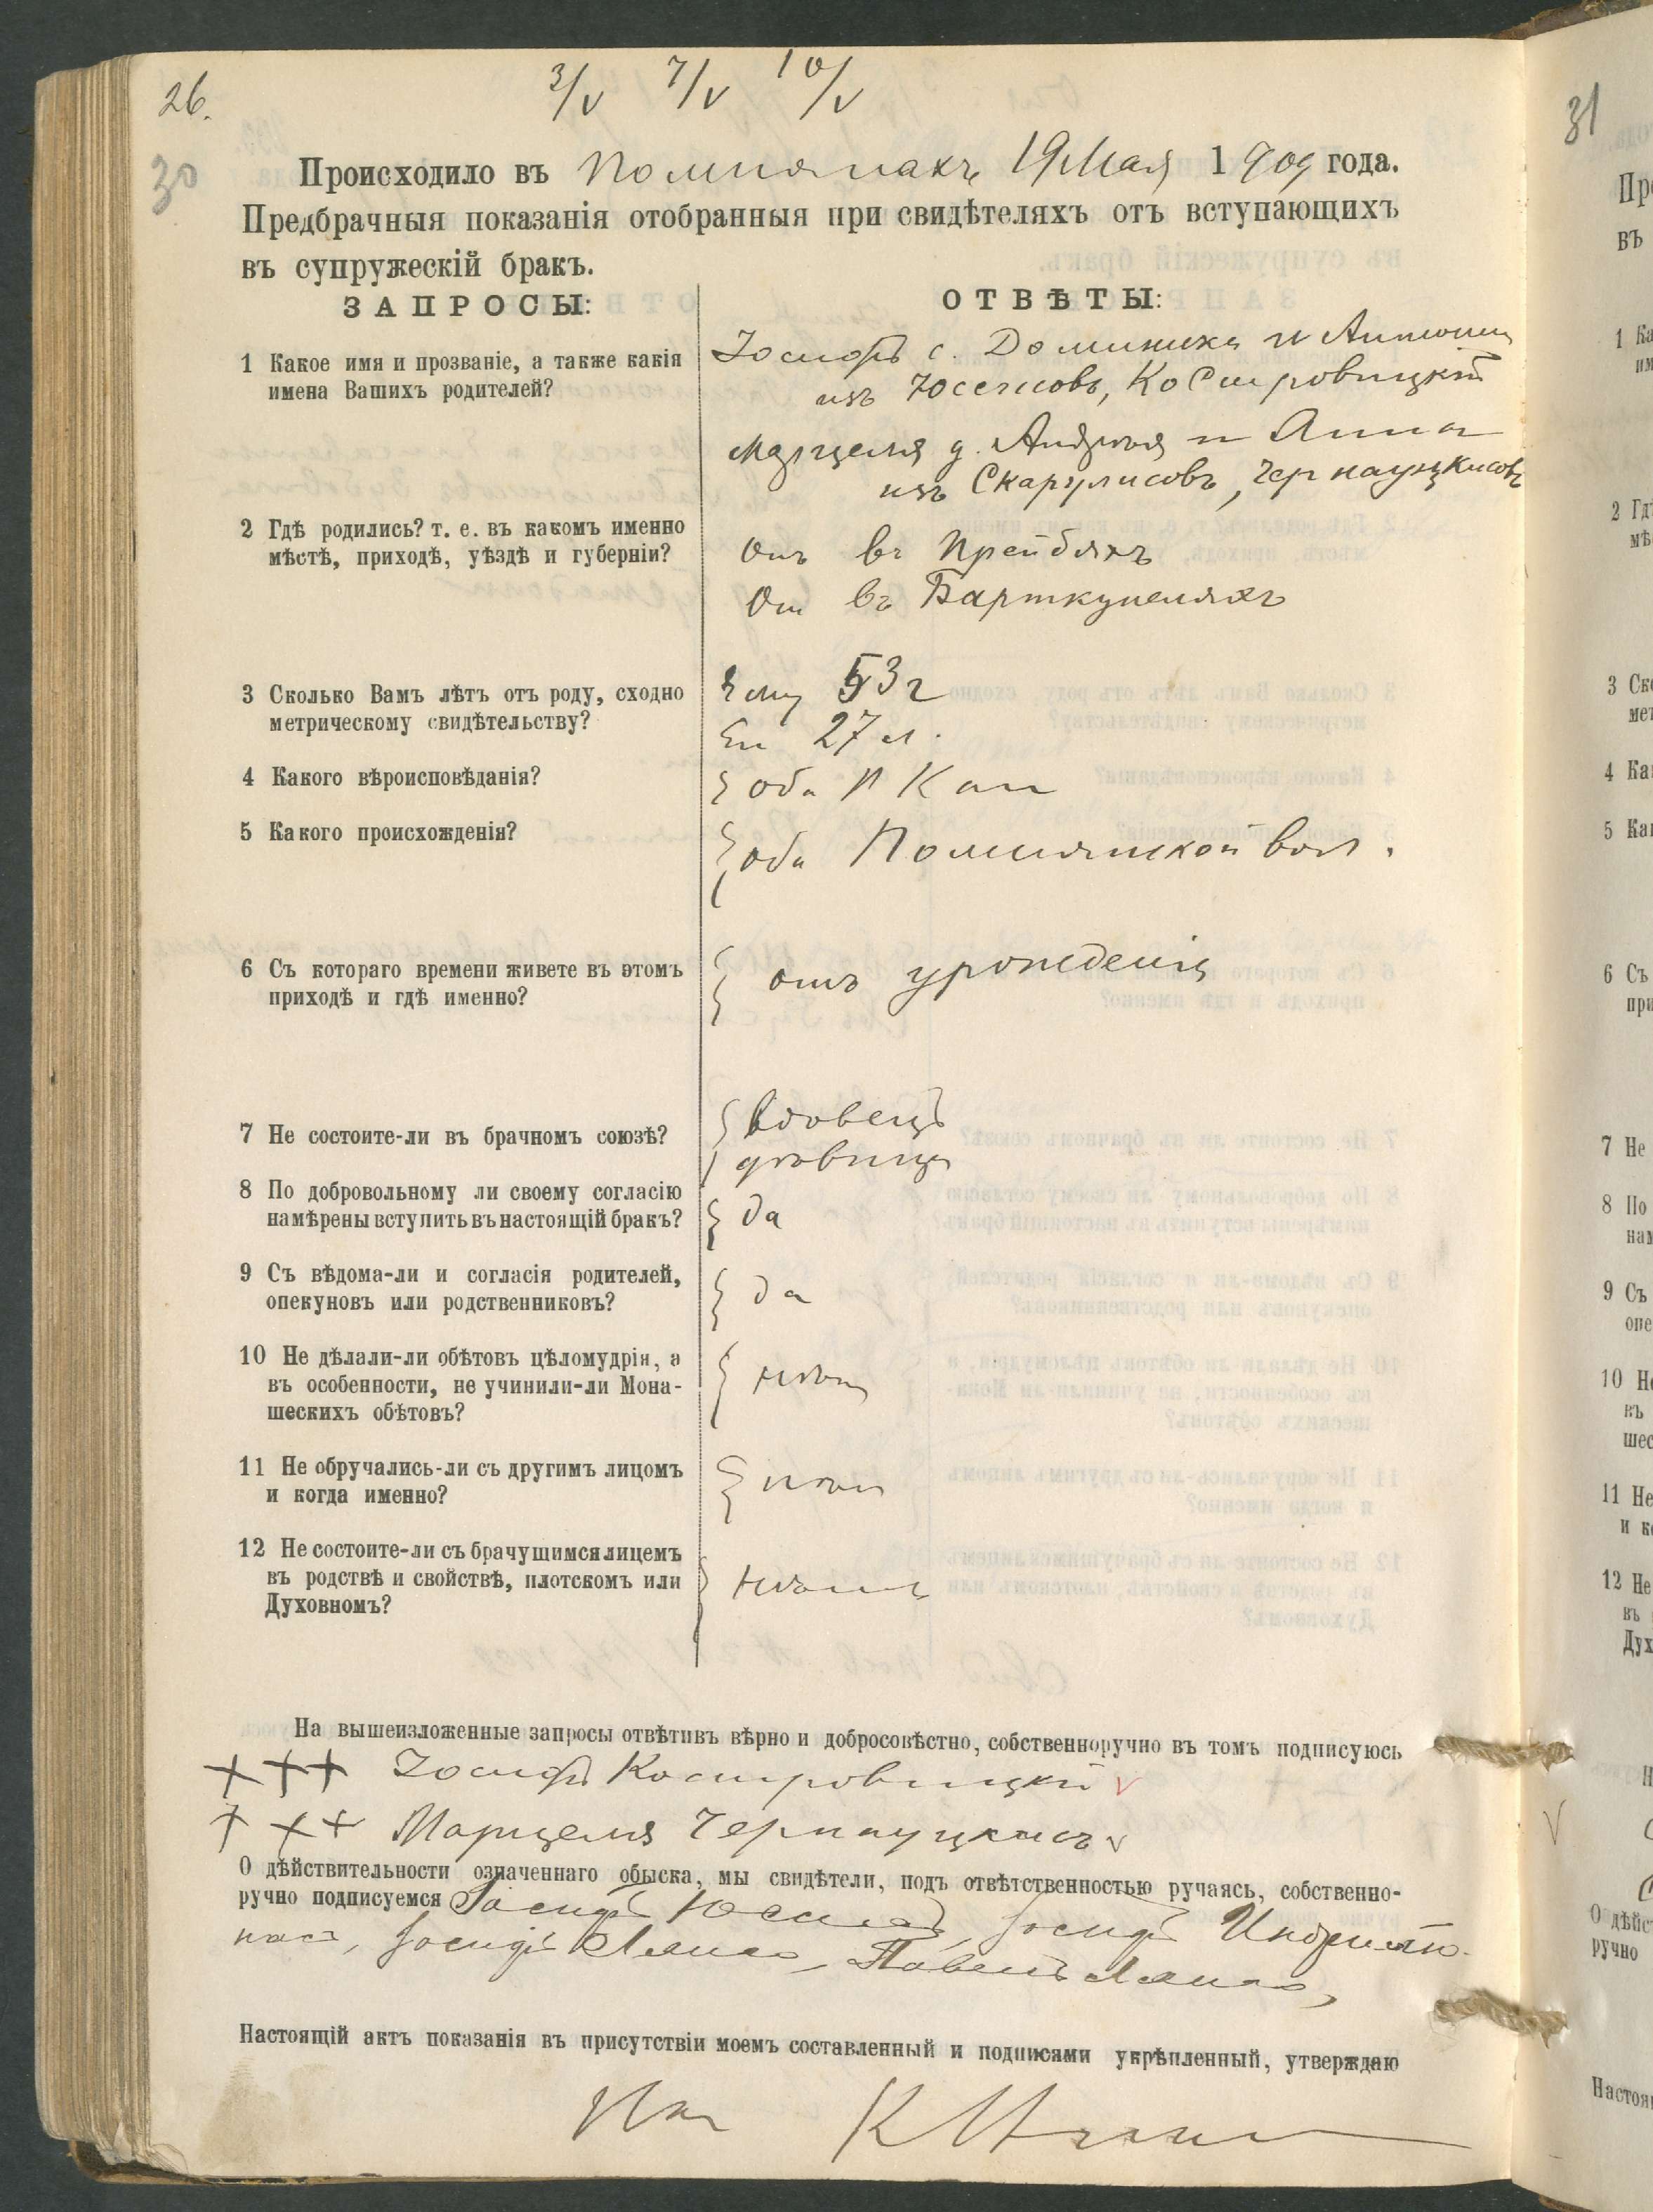 26.
3/V 7/V 10/V
30
Происходило въ Помпянахъ 19 Мая 1909 года.
Предбрачныя показанія отобранныя при свидѣтеляхъ отъ вступающихъ
въ супружескій бракъ.
ЗАПРОСЫ:
ОТВѢТЫ:
1 Какое имя и прозваніе, а также какія
имена Вашихъ родителей?
Іосифъ с. Доминика и Антонины
изъ Юсенисовъ, Костровицкій
Марцеля д. Андрея и Анна
изъ Скарулисовъ, Чернауцкисовъ
2 Гдѣ родились? т. е. въ какомъ именно
мѣстѣ, приходѣ, уѣздѣ и губерніи?
Онъ въ Прейбляхъ
Она въ Барткунеляхъ
3 Сколько Вамъ лѣтъ отъ роду, сходно
метрическому свидѣтельству?
Ему 53 г
Ей 27 л.
4 Какого вѣроисповѣданія?
оба Р Кат
5 Какого происхожденія?
оба Помпянской вол.
6 Съ котораго времени живете въ этомъ
приходѣ и гдѣ именно?
отъ урожденія
7 Не состоите-ли въ брачномъ союзѣ?
вдовецъ
дѣвица
8 По добровольному ли своему согласію
намѣрены вступить въ настоящій бракъ?
да
9 Съ вѣдома-ли и согласія родителей,
опекуновъ или родственниковъ?
да
10 Не дѣлали-ли обѣтовъ цѣломудрія, а
въ особенности, не учинили-ли Мона-
шескихъ обѣтовъ?
нѣтъ
11 Не обручались-ли съ другимъ лицомъ
и когда именно?
нѣтъ
12 Не состоите-ли съ брачущимся лицемъ
въ родствѣ и свойствѣ, плотскомъ или
Духовномъ?
нѣтъ
На вышеизложенные запросы отвѣтивъ вѣрно и добросовѣстно, собственноручно въ томъ подписуюсь
+++ Іосифъ Костровицкій
+++ Марцеля Чернауцкисъ
О дѣйствительности означеннаго обыска, мы свидѣтели, подъ отвѣтственностью ручаясь, собственно-
ручно подписуемся Іосифъ Іосифъ
Іосифъ Павелъ
Настоящій актъ показанія въ присутствіи моемъ составленный и подписями укрѣпленный, утверждаю
31